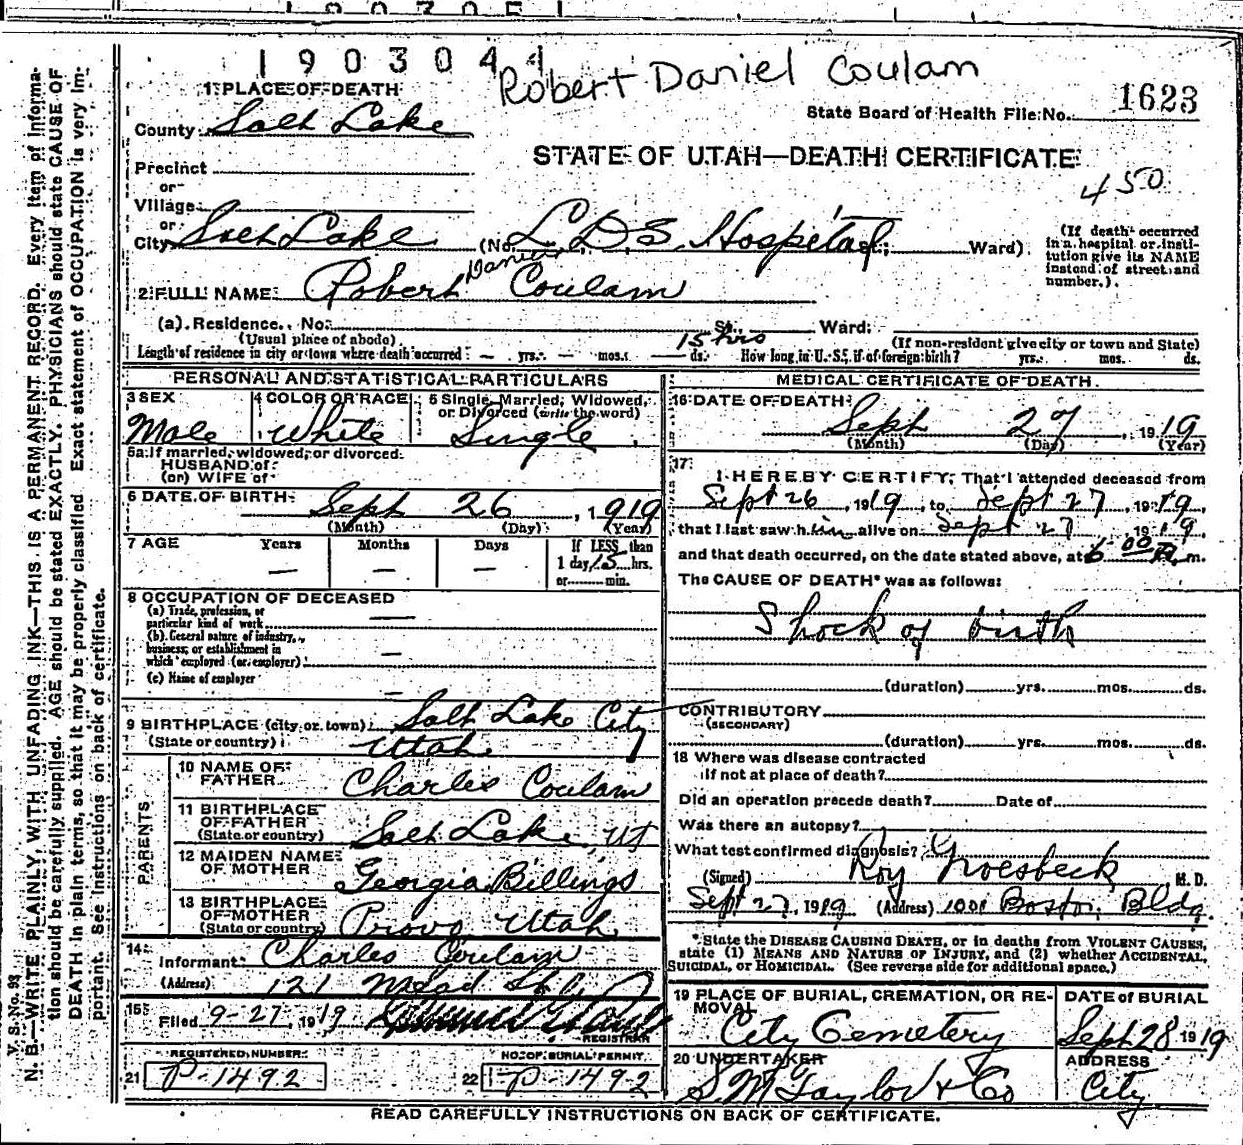 1903044
Robert Daniel Coulam
1 PLACE OF DEATH
State Board of Health File No. 1623
County Salt Lake
STATE OF UTAH—DEATH CERTIFICATE
450
Precinct
or
Village
or
City Salt Lake (No. L.D.S. Hospital St.; Ward)
(If death occurred in a hospital or institution give its NAME instead of street and number.)
Daniel
2 FULL NAME Robert Coulam
(a) Residence. No. St. Ward;
(Usual place of abode) (If non-resident give city or town and State)
Length of residence in city or town where death occurred — yrs. — mos. — ds. 15 hrs How long in U. S. if of foreign birth? yrs. mos. ds.
PERSONAL AND STATISTICAL PARTICULARS
3 SEX Male
4 COLOR OR RACE White
5 Single, Married, Widowed, or Divorced (write the word) Single
5a If married, widowed, or divorced
HUSBAND of
(or) WIFE of
6 DATE OF BIRTH Sept 26, 1919
(Month) (Day) (Year)
7 AGE Years Months Days If LESS than
— — — 1 day, 15 hrs.
or min.
8 OCCUPATION OF DECEASED
(a) Trade, profession, or particular kind of work —
(b) General nature of industry, business, or establishment in which employed (or employer) —
(c) Name of employer —
9 BIRTHPLACE (city or town) Salt Lake City
(State or country) Utah
PARENTS
10 NAME OF FATHER Charles Coulam
11 BIRTHPLACE OF FATHER (State or country) Salt Lake, UT
12 MAIDEN NAME OF MOTHER Georgia Billings
13 BIRTHPLACE OF MOTHER (State or country) Provo Utah
14 Informant Charles Coulam
(Address) 121 Mead St
15 Filed 9-27, 1919
REGISTRAR
REGISTERED NUMBER
21 P-1492
NO. OF BURIAL PERMIT
22 P-1492
MEDICAL CERTIFICATE OF DEATH
16 DATE OF DEATH
Sept 27, 1919
(Month) (Day) (Year)
17 I HEREBY CERTIFY, That I attended deceased from
Sept 26, 1919, to Sept 27, 1919,
that I last saw him alive on Sept 27 1919,
and that death occurred, on the date stated above, at 6 00 a. m.
The CAUSE OF DEATH* was as follows:
Shock of birth
(duration) yrs. mos. ds.
CONTRIBUTORY
(SECONDARY)
(duration) yrs. mos. ds.
18 Where was disease contracted
if not at place of death?
Did an operation precede death? Date of
Was there an autopsy?
What test confirmed diagnosis?
(Signed) Roy Groesbeck M. D.
Sept 27, 1919 (Address) 1001 Boston Bldg.
*State the DISEASE CAUSING DEATH, or in deaths from VIOLENT CAUSES,
state (1) MEANS AND NATURE OF INJURY, and (2) whether ACCIDENTAL,
SUICIDAL, or HOMICIDAL. (See reverse side for additional space.)
19 PLACE OF BURIAL, CREMATION, OR REMOVAL City Cemetery
DATE of BURIAL Sept 28 1919
20 UNDERTAKER S M Taylor & Co
ADDRESS City
READ CAREFULLY INSTRUCTIONS ON BACK OF CERTIFICATE.
V. S. No. 93
N. B.—WRITE PLAINLY, WITH UNFADING INK—THIS IS A PERMANENT RECORD. Every item of information should be carefully supplied. AGE should be stated EXACTLY. PHYSICIANS should state CAUSE OF DEATH in plain terms, so that it may be properly classified. Exact statement of OCCUPATION is very important. See instructions on back of certificate.